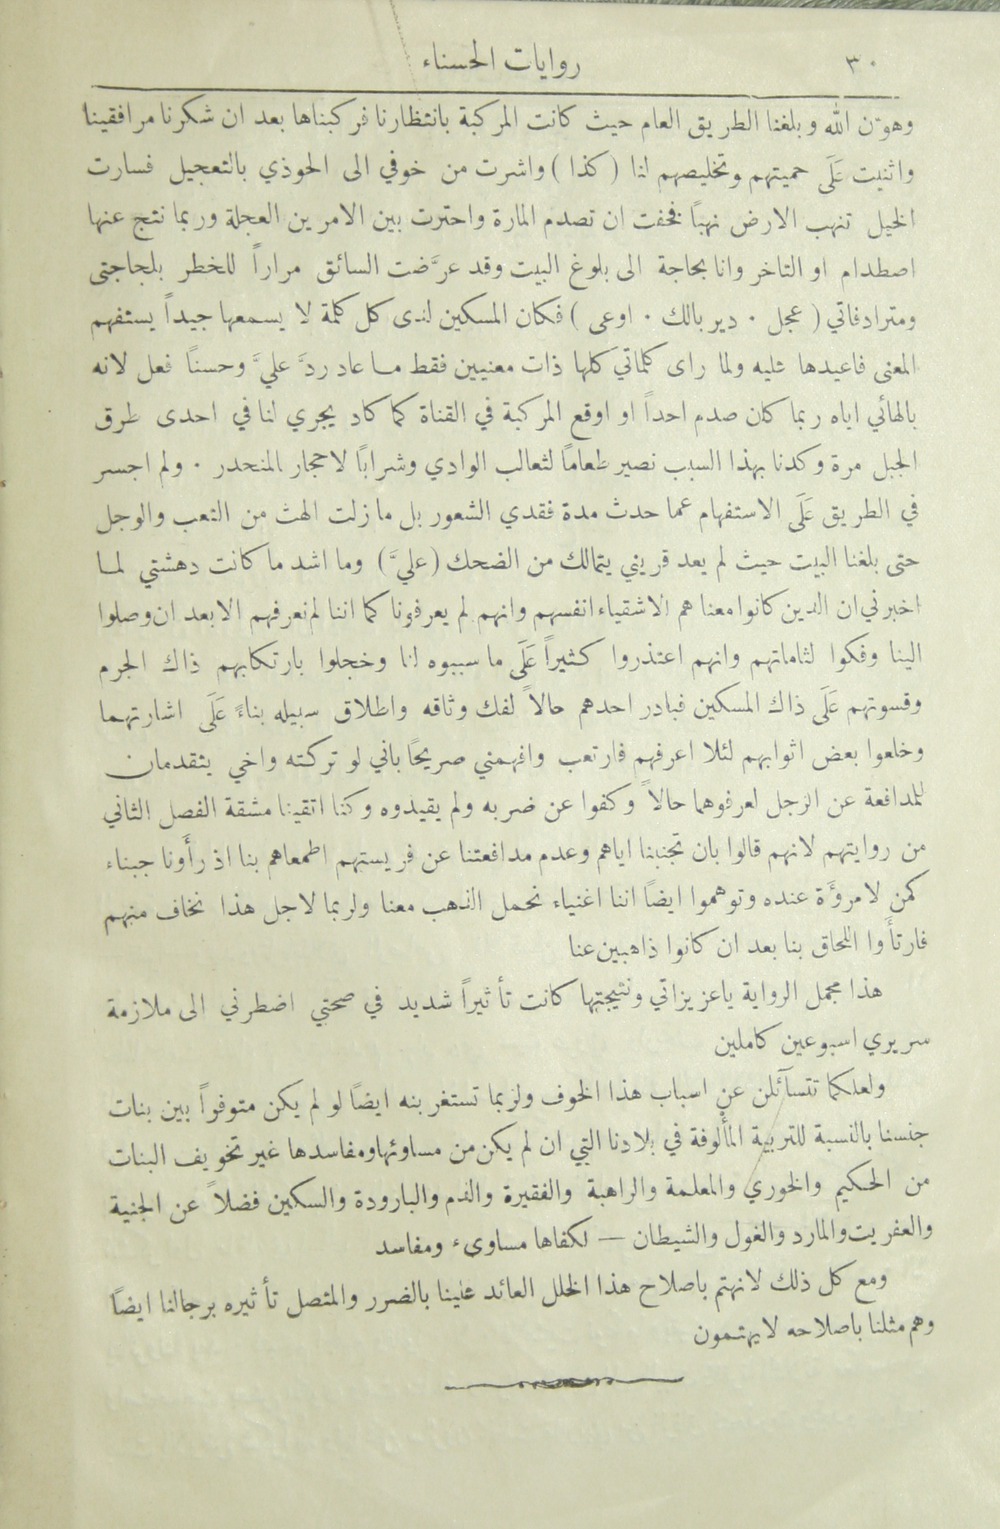 ٣٠
روايات الحسناء
وهوّن الله وبلغنا الطريق العام حيث كانت المركبة بانتظارنا فركبناها بعد ان شكرنا مرافقينا
واثنيت عَلَى حميتهم وتخليصهم لنا (كذا) واشرت من خوفي الى الحوذي بالتعجيل فسارت
الخيل تنهب الارض نهباً فخفت ان تصدم المارة واحترت بين الامرين العجلة وربما نتج عنها
اصطدام او التاخر وانا بحاجة الى بلوغ البيت وقد عرَّضت السائق مراراً للخطر بلجاجتى
ومترادفاتي (عجل . دير بالك . اوعى) فكان المسكين لدى كل كلمة لا يسمعها جيداً يستفهم
المعنى فاعيدها عليه ولما راى كلماتي كلها ذات معنيين فقط ما عاد ردَّ عليَّ وحسناً فعل لانه
بالهائي اياه ربما كان صدم احداً او اوقع المركبة في القناة كما كاد يجري لنا في احدى طرق
الجبل مرة وكدنا بهذا السبب نصير طعاماً لثعالب الوادي وشراباً لاحجار المنحدر . ولم اجسر
في الطريق عَلَى الاستفهام عما حدث مدة فقدي الشعور بل ما زلت الهث من التعب والوجل
حتى بلغنا البيت حيث لم يعد قريني يتمالك من الضحك (عليَّ) وما اشد ما كانت دهشتي لما
اخبرني ان الذين كانوا معنا هم الاشقياء انفسهم وانهم لم يعرفونا كما اننا لم نعرفهم الا بعد ان وصلوا
الينا وفكوا لثاماتهم وانهم اعتذروا كثيراً عَلَى ما سببوه لنا وخجلوا بارتكابهم ذاك الجرم
وقسوتهم عَلَى ذاك المسكين فبادر احدهم حالاً لفك وثاقه واطلاق سبيله بناءً عَلَى اشارتهما
وخلعوا بعض اثوابهم لئلا اعرفهم فارتعب وافهمني صريحاً باني لو تركته واخي يتقدمان
للمدافعة عن الرجل لعرفوهما حالاً وكفوا عن ضربه ولم يقيدوه وكنا اتقينا مشقة الفصل الثاني
من روايتهم لانهم قالوا بان تجنبنا اياهم وعدم مدافعتنا عن فريستهم اطمعاهم بنا اذ رأَونا جبناء
كمن لا مروَّة عنده وتوهموا ايضاً اننا اغنياء نحمل الذهب معنا ولربما لاجل هذا نخاف منهم
فارتأَوا اللحاق بنا بعد ان كانوا ذاهبين عنا
هذا مجمل الرواية ياعزيزاتي ونتيجتها كانت تأثيراً شديد في صحتي اضطرني الى ملازمة
سريري اسبوعين كاملين
ولعلكما تتسآئلن عن اسباب هذا الخوف ولربما تستغربنه ايضاً لو لم يكن متوفراً بين بنات
جنسنا بالنسبة للتربية المأْلوفة في بلادنا التي ان لم يكن من مساوئها ومفاسدها غير تخويف البنات
من الحكيم والخوري والمعلمة والراهبة والفقيرة والدم والبارودة والسكين فضلاً عن الجنية
والعفريت والمارد والغول والشيطان — لكفاها مساوىء ومفاسد
ومع كل ذلك لا نهتم باصلاح هذا الخلل العائد علينا بالضرر والمتصل تأثيره برجالنا ايضاً
وهم مثلنا باصلاحه لا يهتمون